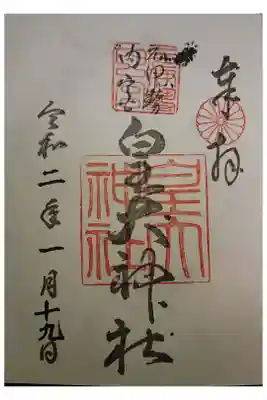 奉拝
元伊勢
内宮
皇大神社
皇大
神社
令和二年一月十九日